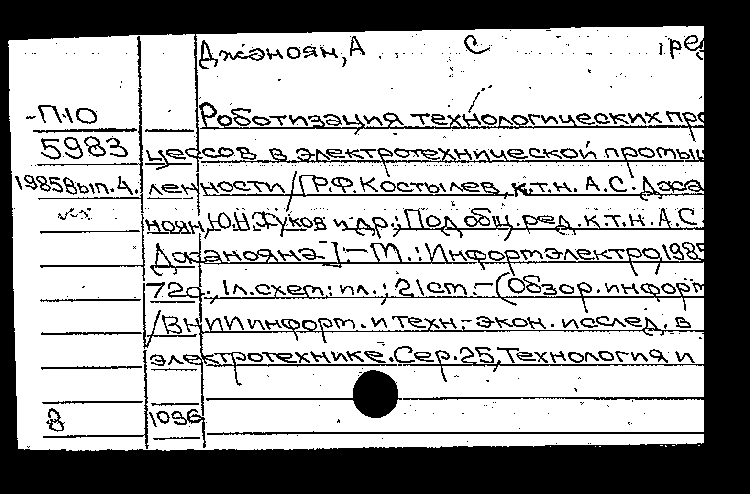 Джаноян, А С ред
-П10 Роботизация технологических про
5983 цессов в электротехнической промыш
1985 вып. 4. ленности /[Р.Ф. Костылев, к.т.н. А.С. Джа
ноян, Ю.Н. Жуков и др.; Под общ. ред. к.т.н. А.С.
Джанояна]. - М.: Информэлектро, 1985
72 с., 1 л. схем: ил.; 21 см. - (Обзор. информ
/ВНИИ информ. и техн.-экон. исслед. в
электротехнике. Сер. 25, Технология и
8 1096